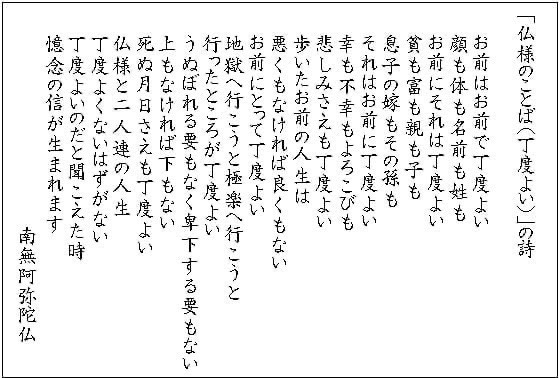 「仏様のことば(丁度よい)」の詩
お前はお前で丁度よい
顔も体も名前も姓も
お前にそれは丁度よい
貧も富も親も子も
息子の嫁もその孫も
それはお前に丁度よい
幸も不幸もよろこびも
悲しみさえも丁度よい
歩いたお前の人生は
悪くもなければ良くもない
お前にとって丁度よい
地獄へ行こうと極楽へ行こうと
行ったところが丁度よい
うぬぼれる要もなく卑下する要もない
上もなければ下もない
死ぬ月日さえも丁度よい
仏様と二人連の人生
丁度よくないはずがない
丁度よいのだと聞こえた時
憶念の信が生まれます
南無阿弥陀仏